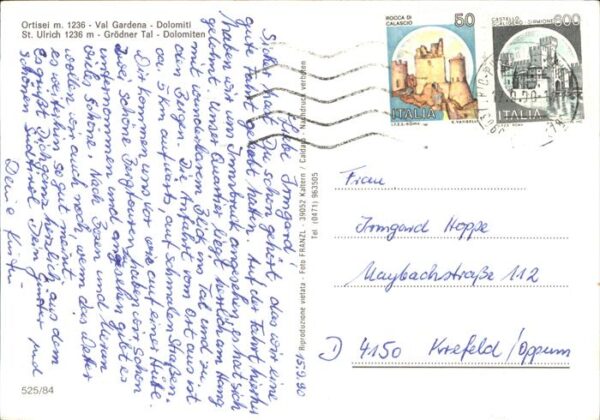 Ortisei m. 1236 - Val Gardena - Dolomiti
St. Ulrich 1236 m - Grödner Tal - Dolomiten
45.9.80
Liebe Irmgard!
Sicher hast Du schon gehört, das wir eine
gute Fahrt gehabt hatten. Auf der Fahrt hierhin
haben wir uns Innsbruck angesehen, es hat sich
gelohnt. Unser Quartier liegt wieder am Hang
mit wunderbarem Blick ins Tal und zu
den Bergen. Die Anfahrt vom Ort aus ist
ca. 5 km aufwärts, auf schmalen Straßen.
Dir können uns wie auf einer Hütte.
zwei schöne Bergtouren haben wir schon
unternommen und angesehen gibt es
viel Schöne, nach Bozen und Meran
wollen wir auch noch, wenn das Wetter
es weiterhin so gut meint.
Es grüßt Dich ganz herzlich aus dem
schönen Südtirol Dein Günter und
Deine Kirsten
Riproduzione vietata - Foto FRANZL - 39052 Kaltern / Caldaro - Nachdruck verboten
Tel (0471) 963505
525/84
ROCCA DI
CALASCIO
50
ITALIA
I.P.Z.S. ROMA
CASTELLO
SCALIGERO - SIRMIONE
600
ITALIA
Frau
Irmgard Hoppe
Maybachstraße 112
D 4150 Krefeld/Oppum